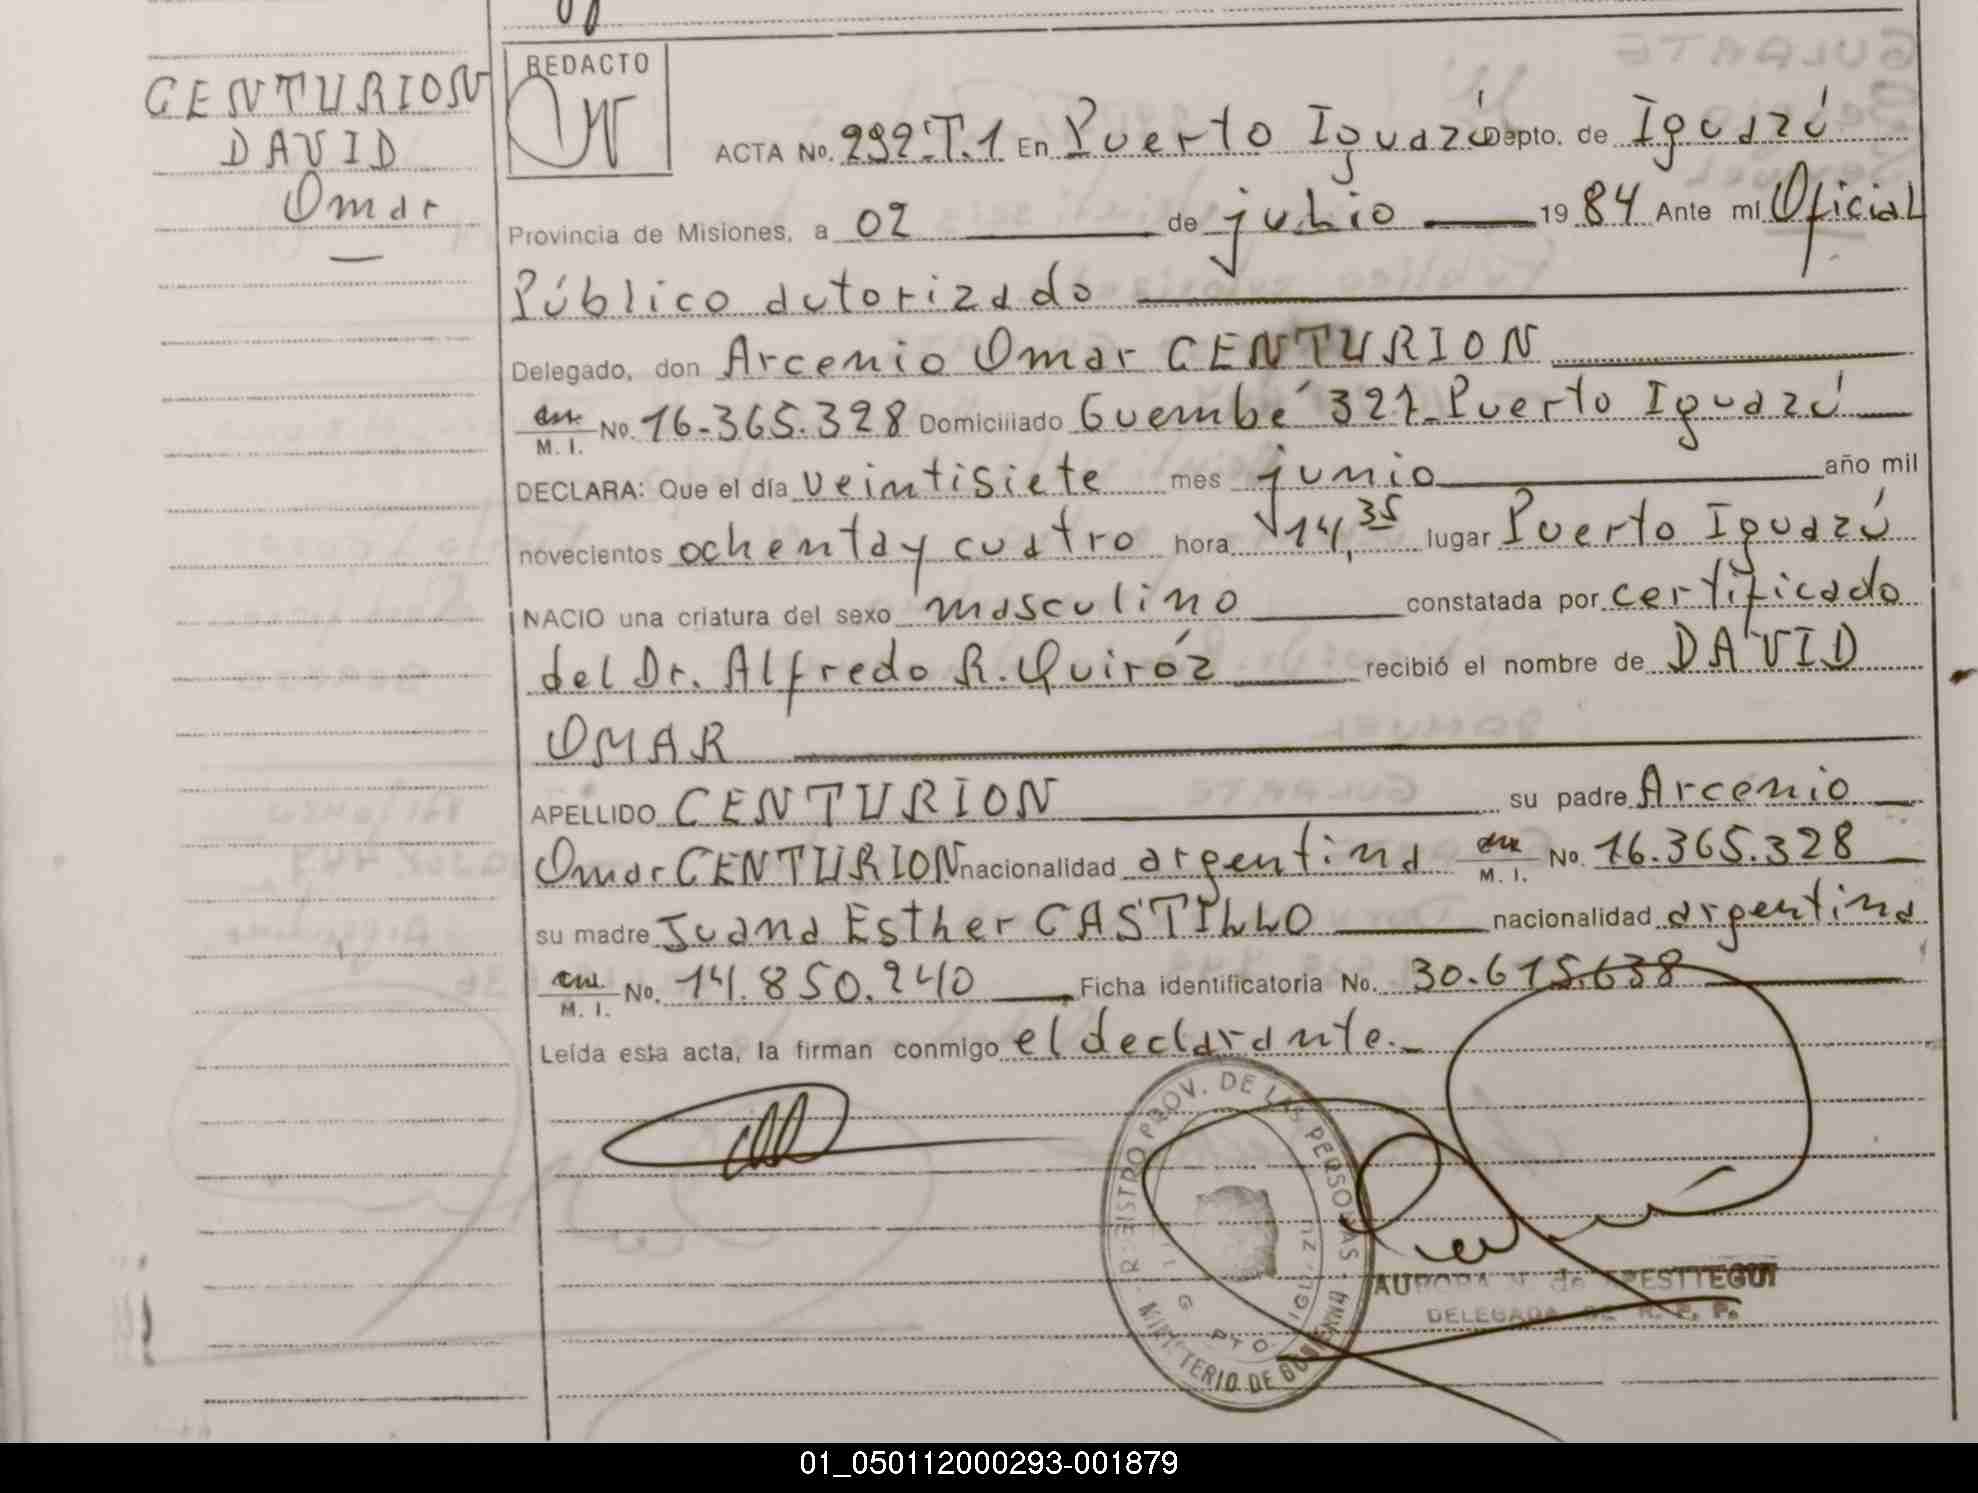 CENTURION
DAVID
Omar
REDACTO
ACTA No. 292.T.1 En Puerto Iguazú Depto. de Iguazú
Provincia de Misiones, a 02 de julio 19 84 Ante mi Oficial
Público autorizado
Delegado, don Arcenio Omar CENTURION
M. I. No. 16.365.328 Domiciliado Guembé 321 Puerto Iguazú
DECLARA: Que el día veintisiete mes junio año mil
novecientos ochenta y cuatro hora 14,35 lugar Puerto Iguazú
NACIO una criatura del sexo masculino constatada por certificado
del Dr. Alfredo R. Quiróz recibió el nombre de DAVID
OMAR
APELLIDO CENTURION su padre Arcenio
Omar CENTURION nacionalidad argentina M. I. No. 16.365.328
su madre Juana Esther CASTILLO nacionalidad argentina
M. I. No. 14.850.240 Ficha identificatoria No. 30.615.638
Leída esta acta, la firman conmigo el declarante.
REGISTRO PROV. DE LAS PERSONAS
MINISTERIO DE GOBIERNO
AURORA N. de
DELEGADA DE R. P. P.
01_050112000293-001879